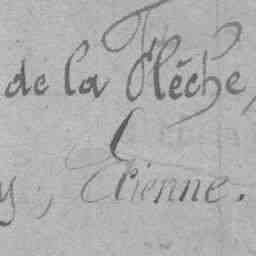 de la Flèche,
y, Etienne.